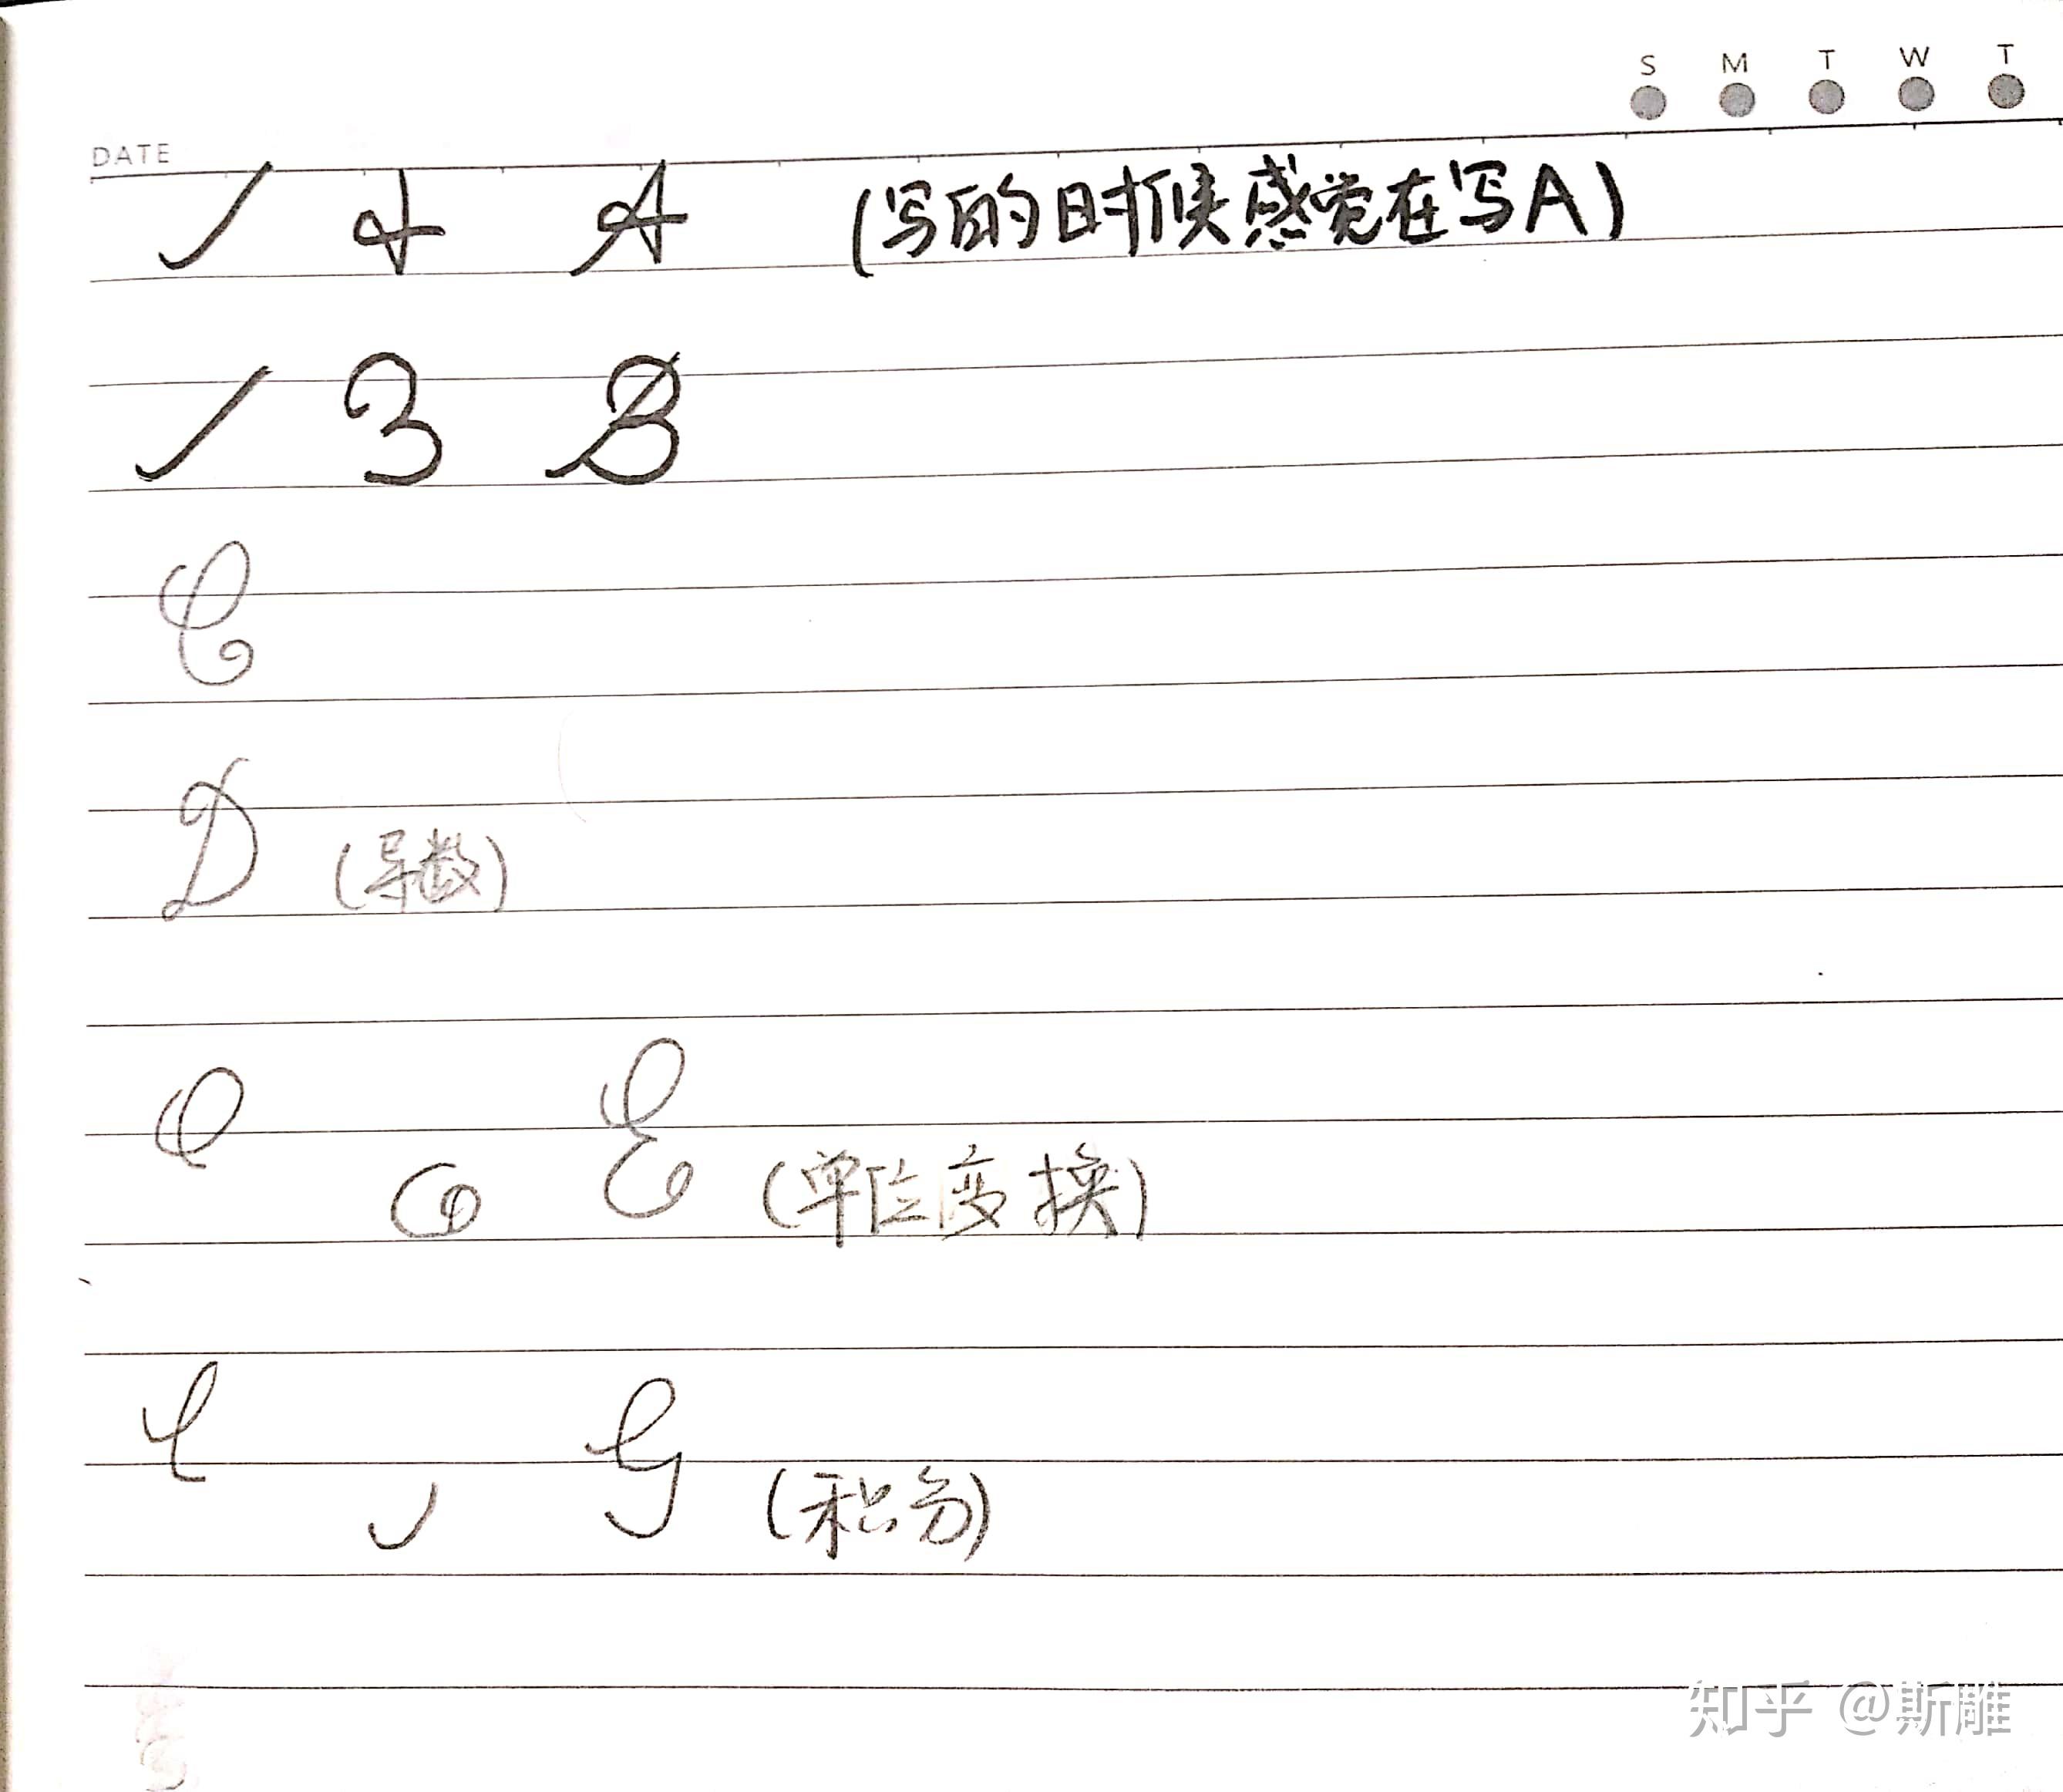 S M T W T
DATE
A (写的时候感觉在写A)
3 B
C
D (导数)
E (单位变换)
G (积分)
知乎 @斯雕